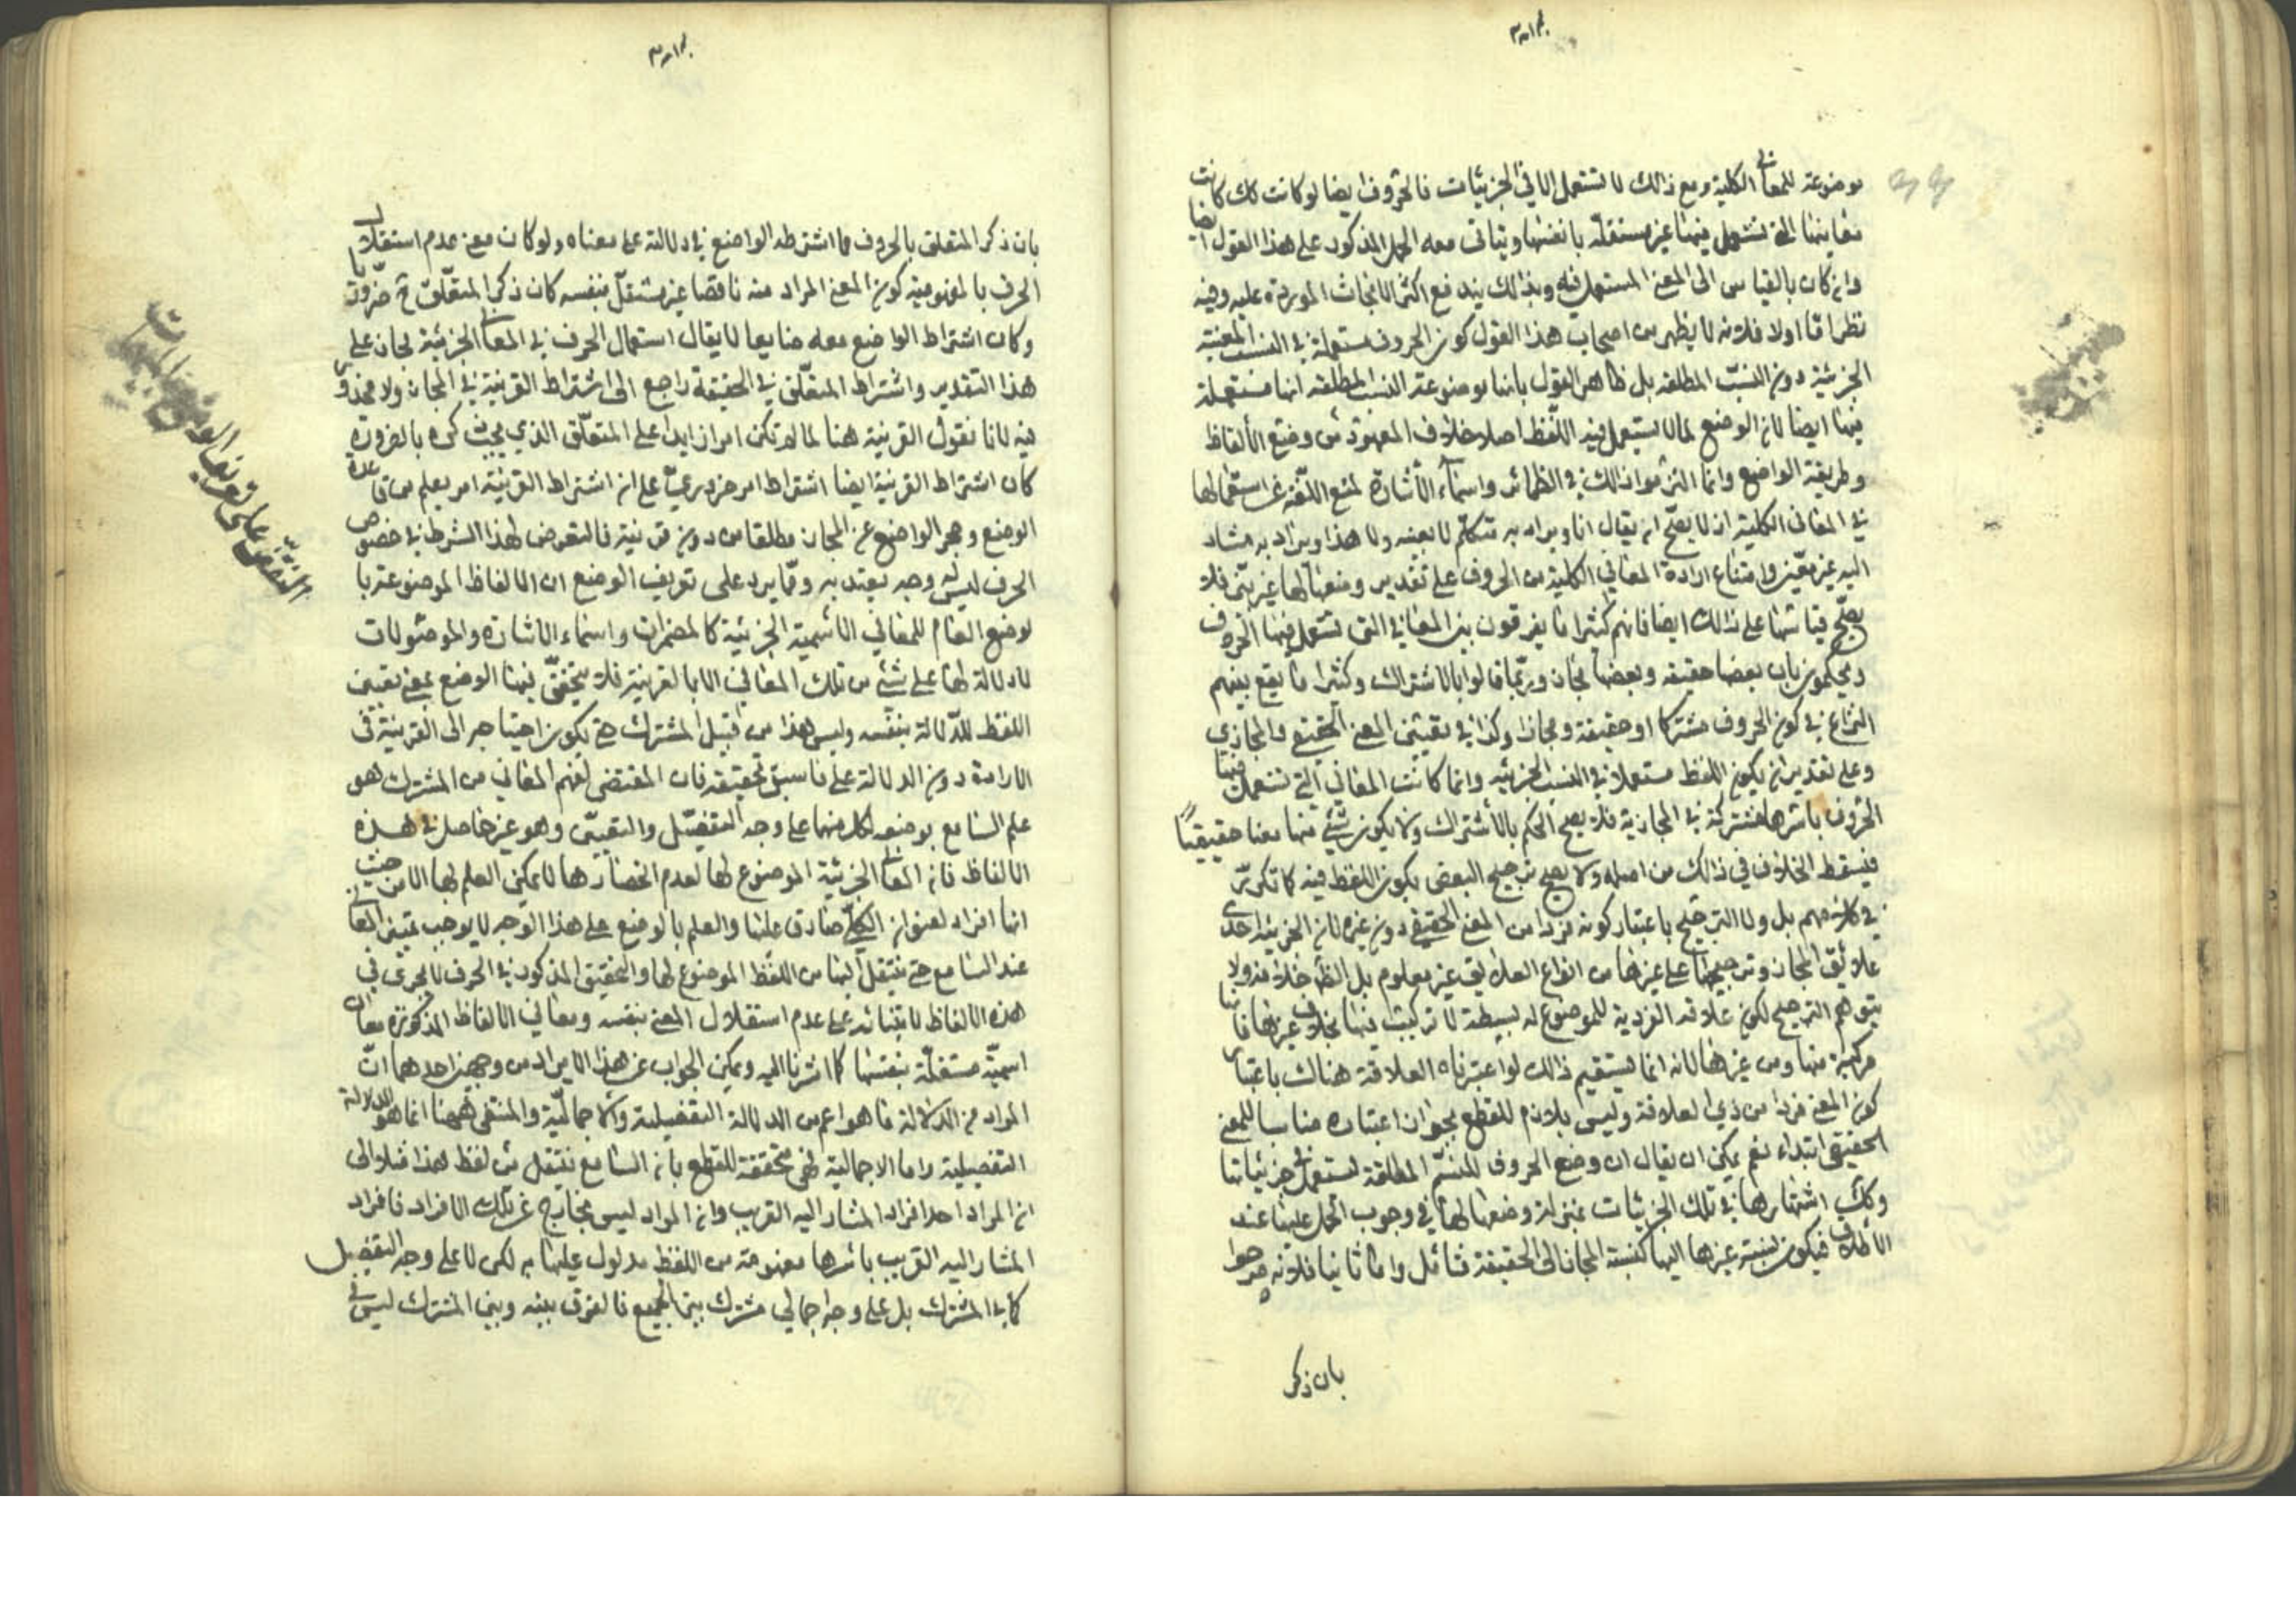 موضوعة للمعاني الكلية ومع ذالك لا تستعمل الا في الجزئيات فالحروف ايضا لو كانت كك كانت
معانيها التي تستعمل فيها غير مستقلة بانفسها ويتاتى معه الحمل المذكور على هذا القول ايضا
وان كان بالقياس الى المعنى المستعمل فيه وبذالك يندفع اكثر الابحاث الموردة عليه وفيه
نظر اما اولا فلانه لا يظهر من اصحاب هذا القول كون الحروف مستعملة في النسب المعينة
الجزئية دون النسب المطلقة بل ظاهر القول بانها موضوعة للنسب المطلقة انها مستعملة
فيها ايضا لان الوضع لما لا يستعمل فيه اللفظ اصلا خلاف المعهود من وضع الألفاظ
وطريقة الواضع وانما التزموا ذالك في الظمائر واسماء الأشارة لمنع اللغة عن استعمالها
في المعاني الكلية اذ لا يصح ان يقال انا ويراد به متكلم لا بعينه ولا هذا ويراد به مشار
اليه غير معين وامتناع ارادة المعاني الكلية من الحروف على تقدير وضعها لها غير بين فلا
يصح قياسها على ذالك ايضا فانهم كثيرا ما يفرقون بين المعاني التي تستعمل فيها الحروف
ويحكمون بان بعضها حقيقة وبعضها مجاز وربما قالوا بالاشتراك وكثيرا ما يقع بينهم
النزاع في كون الحروف مشتركا او حقيقة ومجازا وكذا في تعيين المعنى الحقيقي والمجازي
وعلى تقدير ان يكون اللفظ مستعملا في النسب الجزئية وانما كانت المعاني التي تستعمل فيها
الحروف باسرها مشتركة في المجازية فلا يصح الحكم بالأشتراك ولا يكون شئ منها معنا حقيقيًا
فيسقط الخلاف في ذالك من اصله ولا يصح ترجيح البعض بكون اللفظ فيه كما تكرر
في كلامهم بل ولا الترجيح باعتبار كونه فردا من المعنى الحقيقي دون غيره لان الجزئية احدى
علائق المجاز وترجيحها على غيرها من انواع العلائق غير معلوم بل الظ خلافه ولا
يتوهم الترجيح لكون علاقة الفردية للموضوع له بسيطة لا تركيب فيها بخلاف غيرها فانها
مركبة منها ومن غيرها لانه انما يستقيم ذالك لو اعتبرناه العلاقة هناك باعتبار
كون المعنى فردا من ذي العلاقة وليس بلازم للقطع بجواز اعتباره مناسبا للمعنى
الحقيقي ابتداء نعم يمكن ان يقال ان وضع الحروف للنسب المطلقة لتستعمل في جزئياتها
وكك اشتهارها في تلك الجزئيات بمنزلة وضعها لها في وجوب الحمل عليها عند
الأطلاق فيكون نسبة غيرها اليها كنسبة المجاز الى الحقيقة فتامل واما ثانيا فلانه صرحوا
بان ذكر
بان ذكر المتعلق بالحروف مما اشترطه الواضع في دلالته على معناه ولو كان معنى عدم استقلال
الحرف بالمفهومية كون المعنى المراد منه ناقصا غير مستقل بنفسه كان ذكر المتعلق ح ضروريا
وكان اشتراط الواضع معه ضايعا لا يقال استعمال الحرف في المعاني الجزئية مجاز على
هذا التقدير واشتراط المتعلق في الحقيقة راجع الى اشتراط القرينة في المجاز ولا محذور
فيه لانا نقول القرينة هنا لما لم تكن امرا زايدا على المتعلق الذي يجب ذكره بالضرورة
كان اشتراط القرينة ايضا اشتراط امر ضروري على ان اشتراط القرينة امر يعلم من قاعدة
الوضع وحجر الواضع عن المجاز مطلقا من دون قرينة فالتعرض لهذا الشرط في خصوص
الحرف ليس له وجه يعتد به ومما يرد على تعريف الوضع ان الالفاظ الموضوعة با
لوضع العام للمعاني الأسمية الجزئية كالمضمرات واسماء الاشارة والموصولات
لا دلالة لها على شئ من تلك المعاني الا بالقرينة فلا يتحقق فيها الوضع بمعنى تعيين
اللفظ للدلالة بنفسه وليس هذا من قبيل المشترك حتى تكون احتياجه الى القرينة في
الارادة دون الدلالة على ما سبق تحقيقه فان المقتضي لفهم المعاني من المشترك هو
علم السامع بوضعه لكل منها على وجه التفصيل والتعيين وهو غير حاصل في هذه
الالفاظ فان المعاني الجزئية الموضوع لها لعدم انحصارها لا يمكن العلم بها الا من حيث
انها افراد لعنوان الكلي صادق عليها والعلم بالوضع على هذا الوجه لا يوجب تميز المعاني
عند السامع حتى ينتقل اليها من اللفظ الموضوع لها والتحقيق المذكور في الحرف لا يجرى في
هذه الالفاظ لابتنائه على عدم استقلال المعنى بنفسه ومعاني الالفاظ المذكورة معان
اسمية مستقلة بنفسها كما اشرنا اليه ويمكن الجواب عن هذا الايراد من وجهين احدهما ان
المراد من الدلالة ما هو اعم من الدلالة التفصيلية والاجمالية والمنتفى ههنا انما هو الدلالة
التفصيلية واما الاجمالية فهي متحققة للقطع بان السامع ينتقل من لفظ هذا مثلا الى
ان المراد احد افراد المشار اليه القريب وان المراد ليس بخارج عن تلك الافراد فافراد
المشار اليه القريب باسرها مفهومة من اللفظ مدلول عليها به لكن لا على وجه التفصيل
كما في المشترك بل على وجه اجمالي مشترك بين الجميع فالفرق بينه وبين المشترك ليس في
النقض على تعريف الوضع